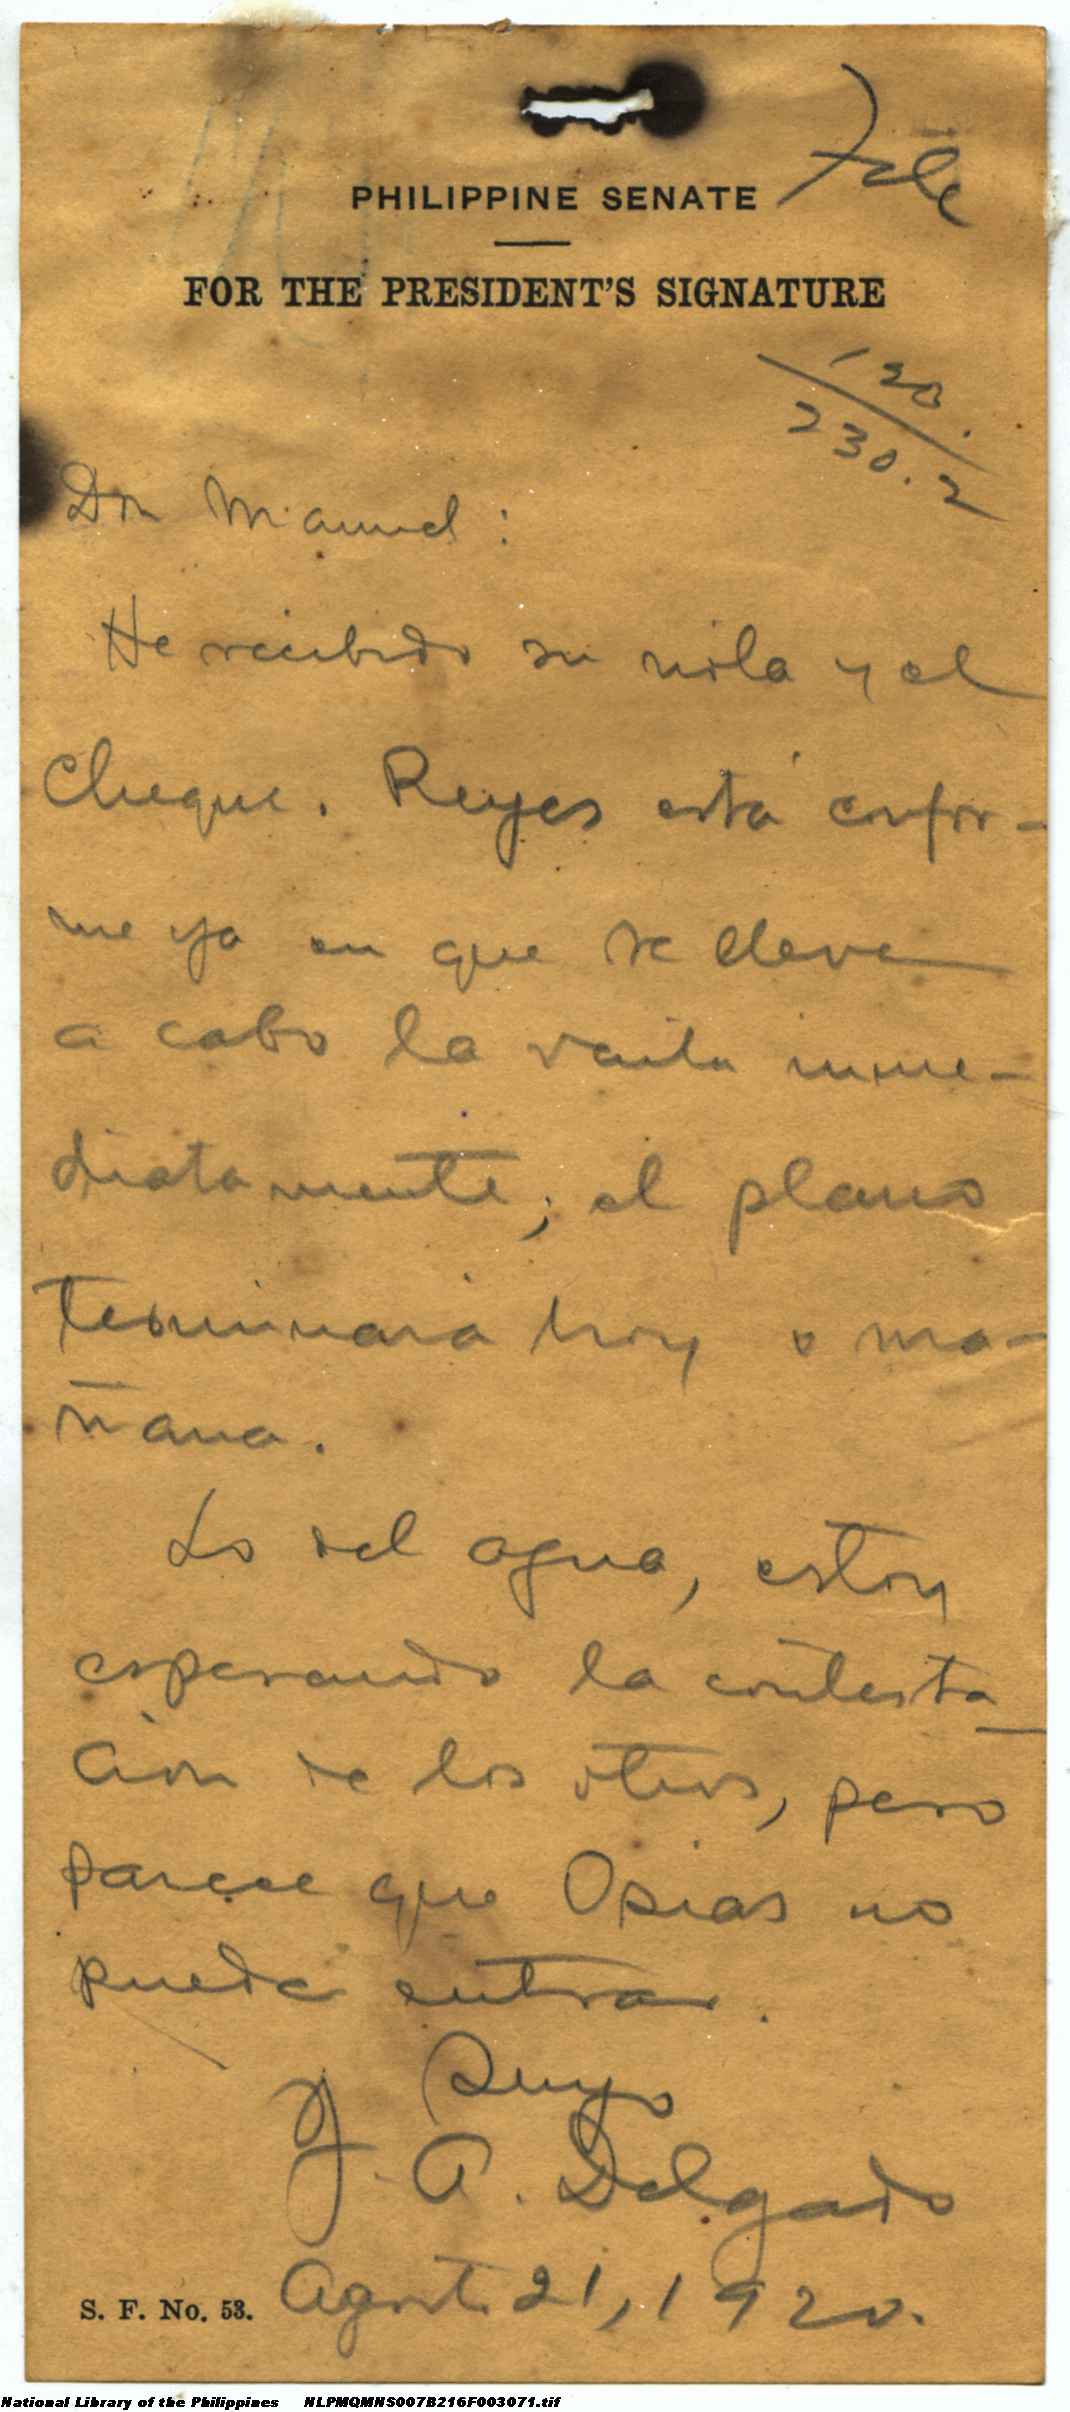 File
PHILIPPINE SENATE
FOR THE PRESIDENT'S SIGNATURE
120.
230.2
Don Manuel:
He recibido su nota y el
cheque. Reyes está confor-
me ya en que se lleve
a cabo la venta inme-
diatamente; el plano
terminará hoy o ma-
ñana.
Lo del agua, estoy
esperando la contesta-
ción de los otros, pero
parece que Osias no
puede entrar.
Suyo
J. A. Delgado
Agost. 21, 1920.
S. F. No. 53.
National Library of the Philippines NLPMQMNS007B216F003071.tif